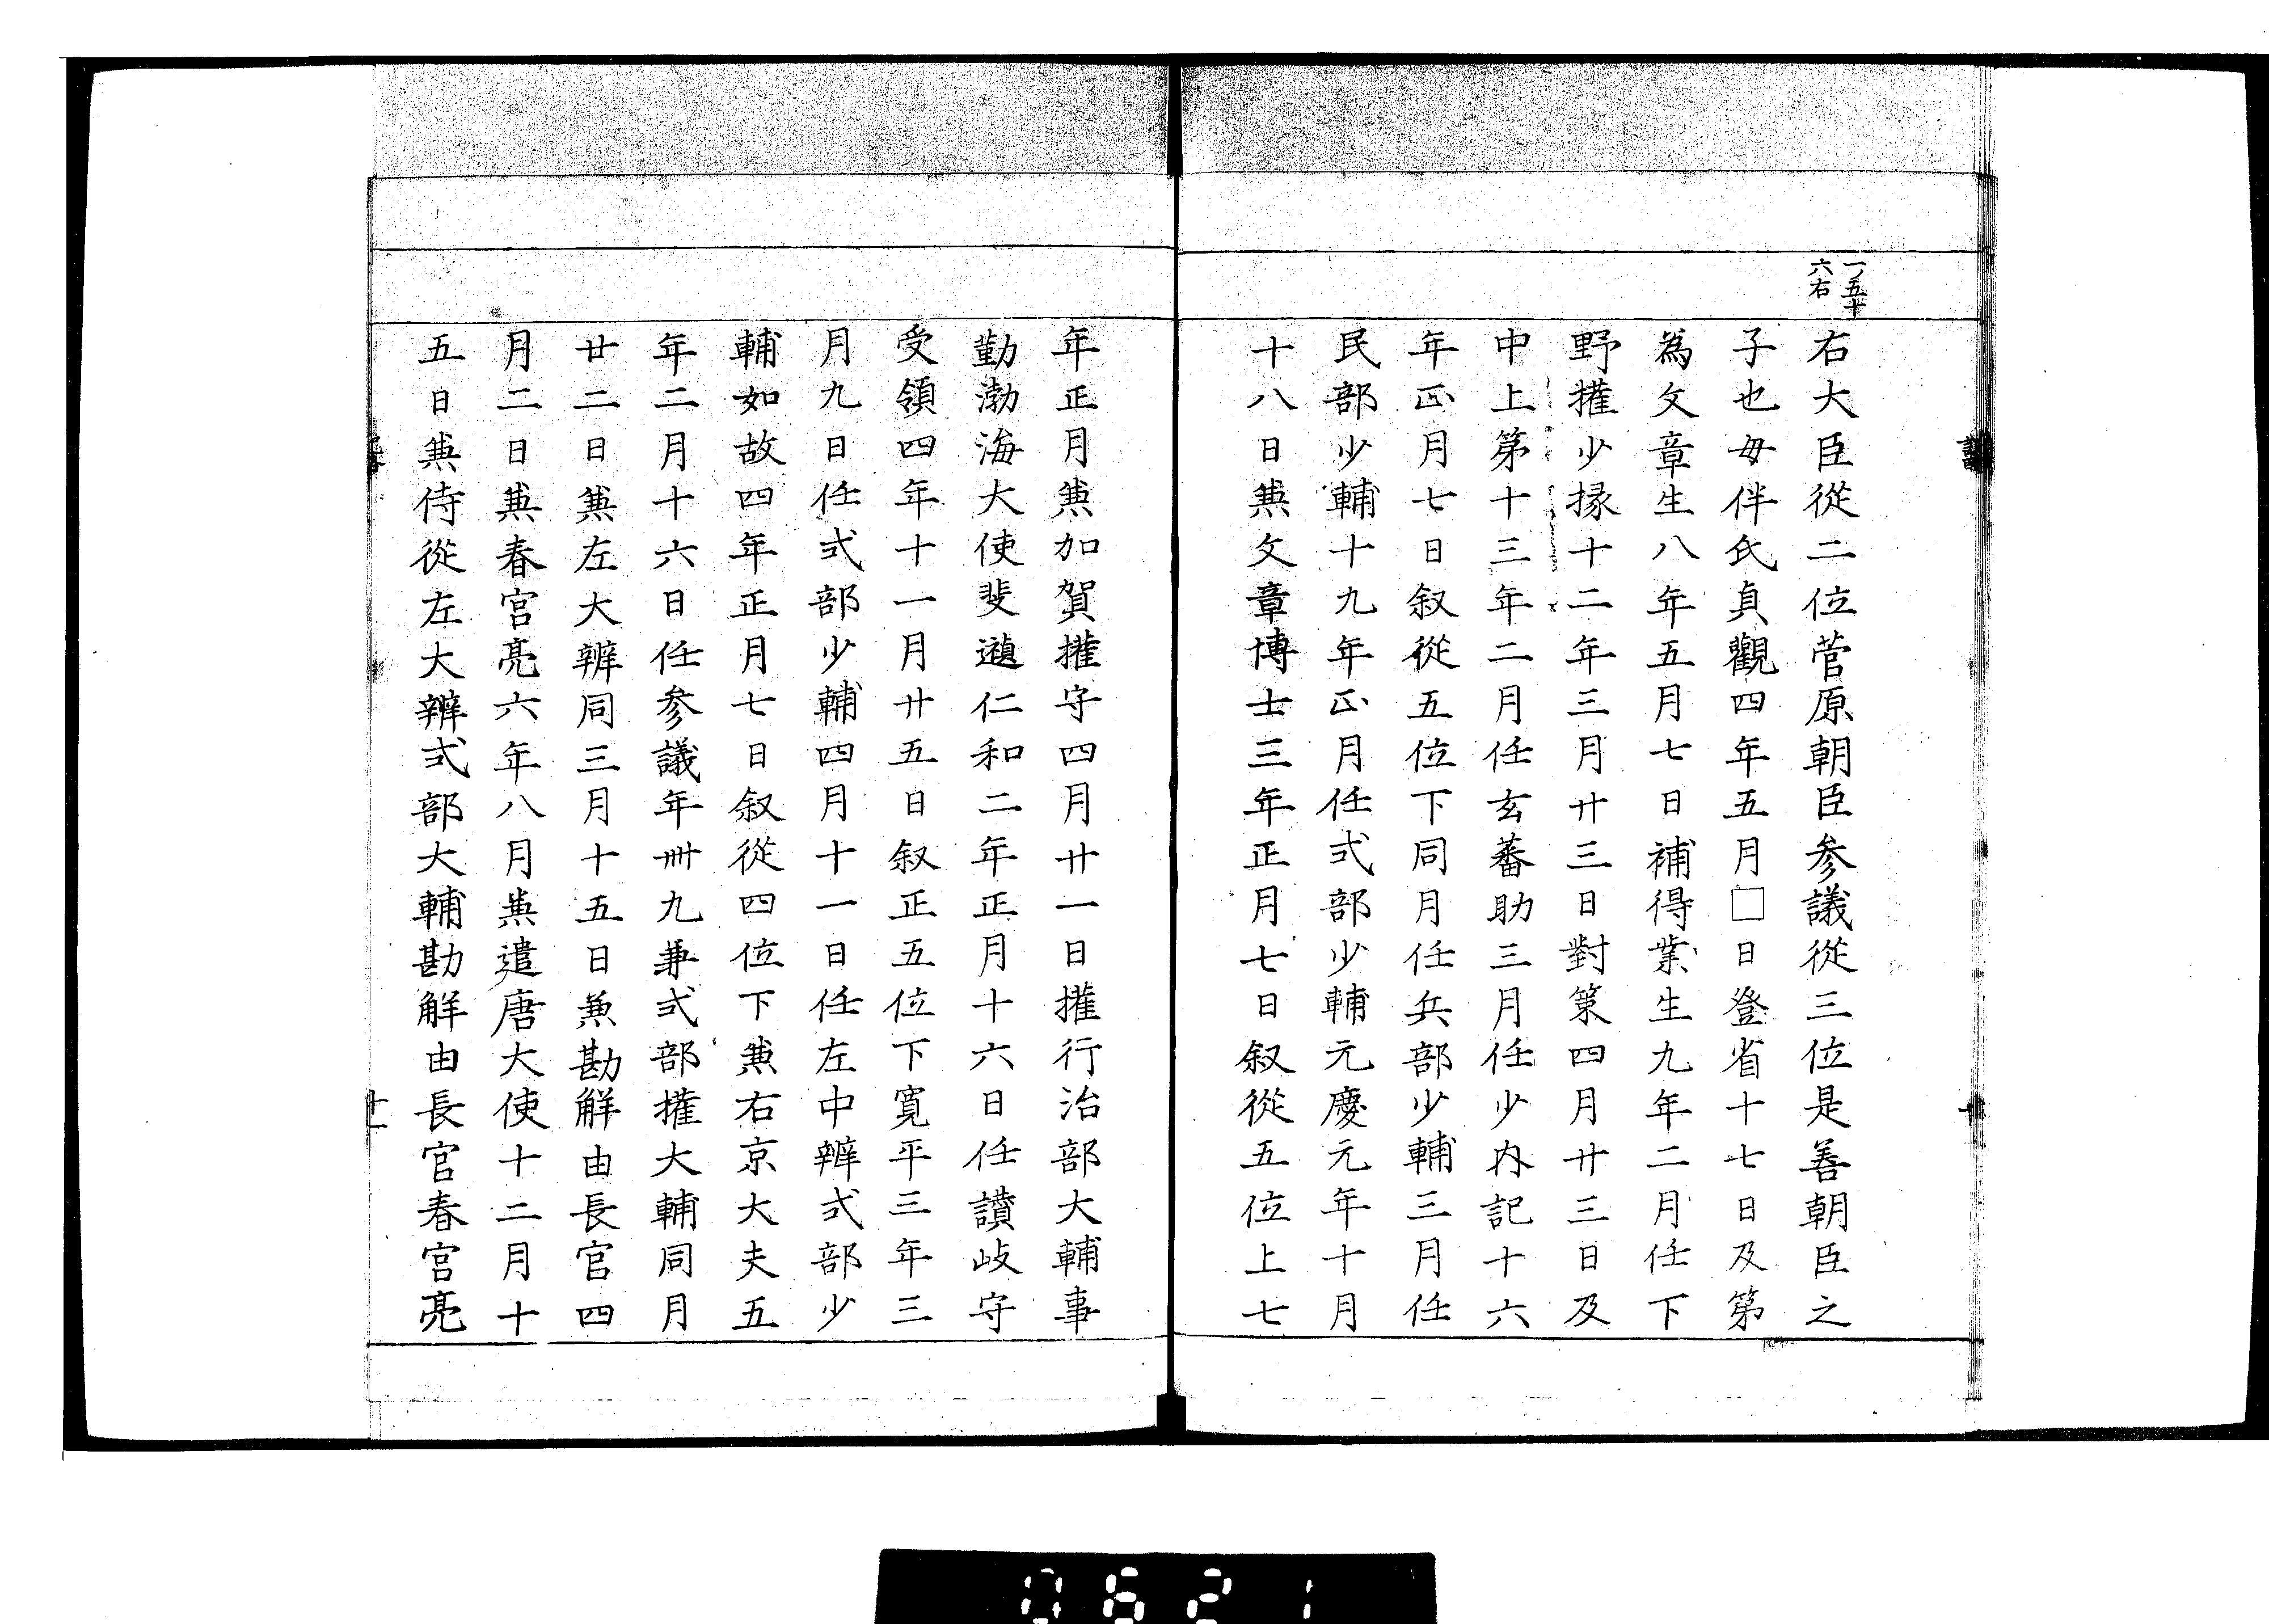 一ノ五十
六右
右大臣從二位菅原朝臣参議從三位是善朝臣之
子也母伴氏貞觀四年五月□日登省十七日及第
為文章生八年五月七日補得業生九年二月任下
野權少掾十二年三月廿三日對策四月廿三日及
中上第十三年二月任玄蕃助三月任少内記十六
年正月七日叙從五位下同月任兵部少輔三月任
民部少輔十九年正月任式部少輔元慶元年十月
十八日兼文章博士三年正月七日叙從五位上七
年正月兼加賀權守四月廿一日權行治部大輔事
勤渤海大使斐遉仁和二年正月十六日任讃岐守
受領四年十一月廿五日叙正五位下寛平三年三
月九日任式部少輔四月十一日任左中辨式部少
輔如故四年正月七日叙從四位下兼右京大夫五
年二月十六日任参議年卌九兼式部權大輔同月
廿二日兼左大辨同三月十五日兼勘解由長官四
月二日兼春宮亮六年八月兼遣唐大使十二月十
五日兼侍從左大辨式部大輔勘解由長官春宮亮
十一
0621